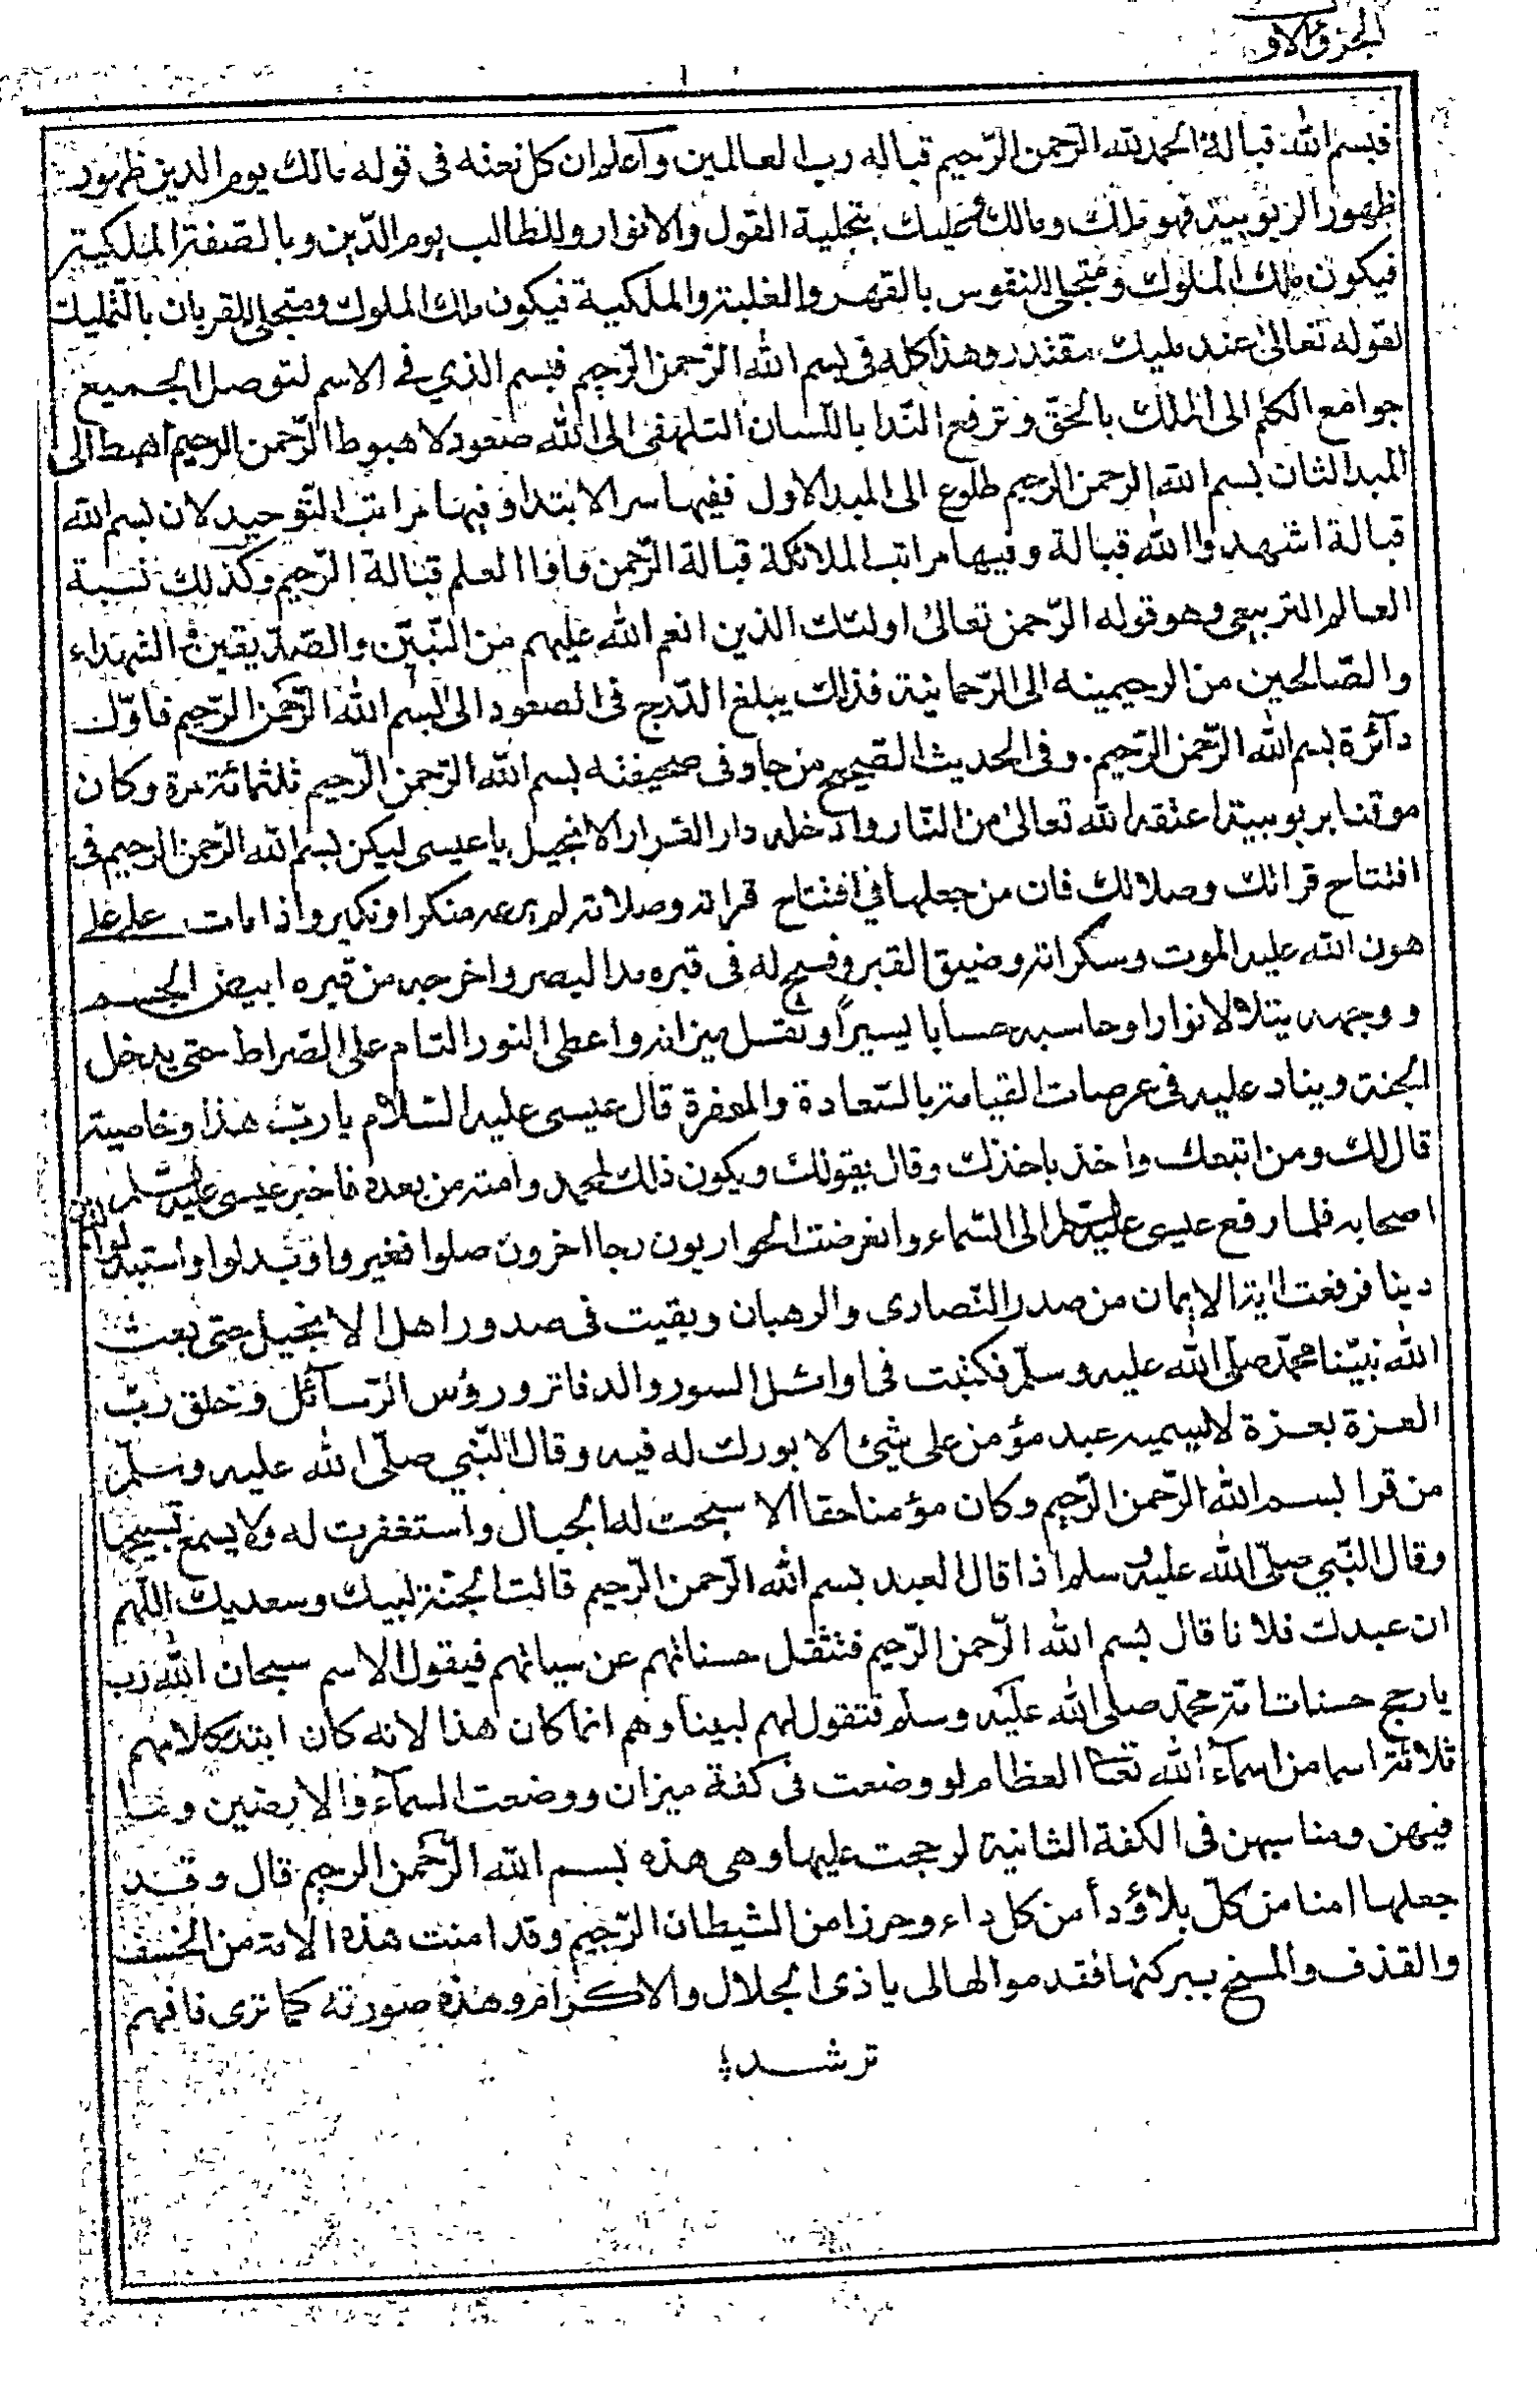 الجزؤ الاو
فبسم الله قبالة الحمد لله الرّحمن الرّحيم قباله رب العالمين وآعلوان كل نعته فى قوله مالك يوم الدين ظهور
ظهور الربوبية فهو ملك ومالك ومليك بتجلية القول والانوار وللطالب يوم الدّين وبالصفة الملكية
فيكون ملك الملوك ومتجلى للنفوس بالقهر والغلبة والملكية فيكون ملك الملوك ومتجلى للقربان بالتّمليك
لقوله تعالىٰ عند مليك مقتدر وهذا كله فى بسم الله الرّحمن الرّحيم فبسم الذي فے الاسم لتوصل الجميع
جوامع الكلم الى الملك بالحقّ وترفع النّدا باللّسان الى الله صعود لا هبوط الرّحمن الرحيم اهبط الى
المبدا لثان بسم الله الرحمن الرحيم طلوع الى المبدا لاول ففيها سر الابتدا وفيها مراتب التّوحيد لان بسم الله
قبالة اشهد واالله قبالة وفيها مراتب الملائكة قبالة الرّحمن وافواا لعلم قبالة الرّحيم وكذلك نسبة
العالم التربيعى وهو قوله الرّحمن تعالىٰ اولئك الذين انعم الله عليهم من النّبيّن والصّدّيقين والشهداء
والصّالحين من الرحيمينه الى الرّحمانية فذالك يبلغ الدّرج فى الصعود الىٰ بسم الله الرّحمن الرّحيم فاوّل
دآئرة بسم الله الرّحمن الرّحيم. وفى الحديث الصّحيح من جاو فى صحيفته بسم الله الرّحمن الرّحيم ثلثمائة مرة وكان
موقنا بربوبيته اعتقه الله تعالىٰ من النّار وادخله دار القرار الانجيل يا عيسى ليكن بسم الله الرّحمن الرحيم فى
افتتاح قراتك وصلاتك فان من جعلها في افتتاح قراته وصلاته لم يرعه منكرا ونكير واذا مات على على
هون الله عليه الموت وسكراته وضيق القبر وفسح له فى قبره مدا لبصر واخرجه من قبره ابيض الجسم
ووجهه يتلالا نوارا وحاسبه حسابا يسيراً وثقل ميزانه واعطى النور التام على الصّراط حتى يدخل
الجنة ويناد عليه فى عرصات القيامة بالسّعادة والمغفرة قال عيسى عليه السّلام يا ربّ هذا وخاصية
قال لك ومن اتبعك واخذ باخذك وقال بقولك ويكون ذلك لمحمد وامته من بعده فاخبر عيسى عليه السّلام
اصحابه فلما رفع عيسى عليه السّلام الى السّماء وانقرضت الحواريون رجا اخرون صلوا فغيروا وبدلوا واستبدلوا الدين
دينا فرفعت اية الايمان من صدر النّصارى والرهبان وبقيت فى صدور اهل الانجيل حتى بعث
الله نبيّنا محمّد صلى الله عليه وسلم فكتبت فى اوائل السور والدفاتر ورؤس الرّسآئل وخلق ربّ
العزة بعزة لا يسميه عبد مؤمن على شئ الا بورك له فيه وقال النّبي صلّى الله عليه وسلّم
من قرا بسم الله الرّحمن الرّحيم وكان مؤمنا حقا الا سبحت له الجبال واستغفرت له ولا يسمع تسبيحها
وقال النّبي صلّى الله عليه وسلم اذا قال العبد بسم الله الرّحمن الرّحيم قالت الجنّة لبيك وسعديك اللّهم
ان عبدك فلانا قال بسم الله الرّحمن الرّحيم فتثقل حسناتهم عن سياتهم فيقول الاسم سبحان الله رب
يارجح حسنات امة محمّد صلى الله عليه وسلم فتقول لهم لبيناوهم انما كان هذا لانه كان ابتدكلامهم
ثلاثة اسما من اسمآء الله تعا العظام لو وضعت فى كفة ميزان ووضعت السمآء والارضين وما
فيهن ومابينهن فى الكفة الثانية لرجحت عليها وهى هذه بسم الله الرّحمن الرحيم قال وقد
جعلها امنا من كلّ بلاؤ دأ من كل داء وحرزا من الشيطان الرّجيم وقد امنت هذه الامة من الخسف
والقذف والمسخ ببركتها فقدموا لها لى يا ذى الجلال والاكرام وهذه صورته كما ترى فافهم
ترشد